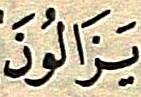 يَزَالُونَ